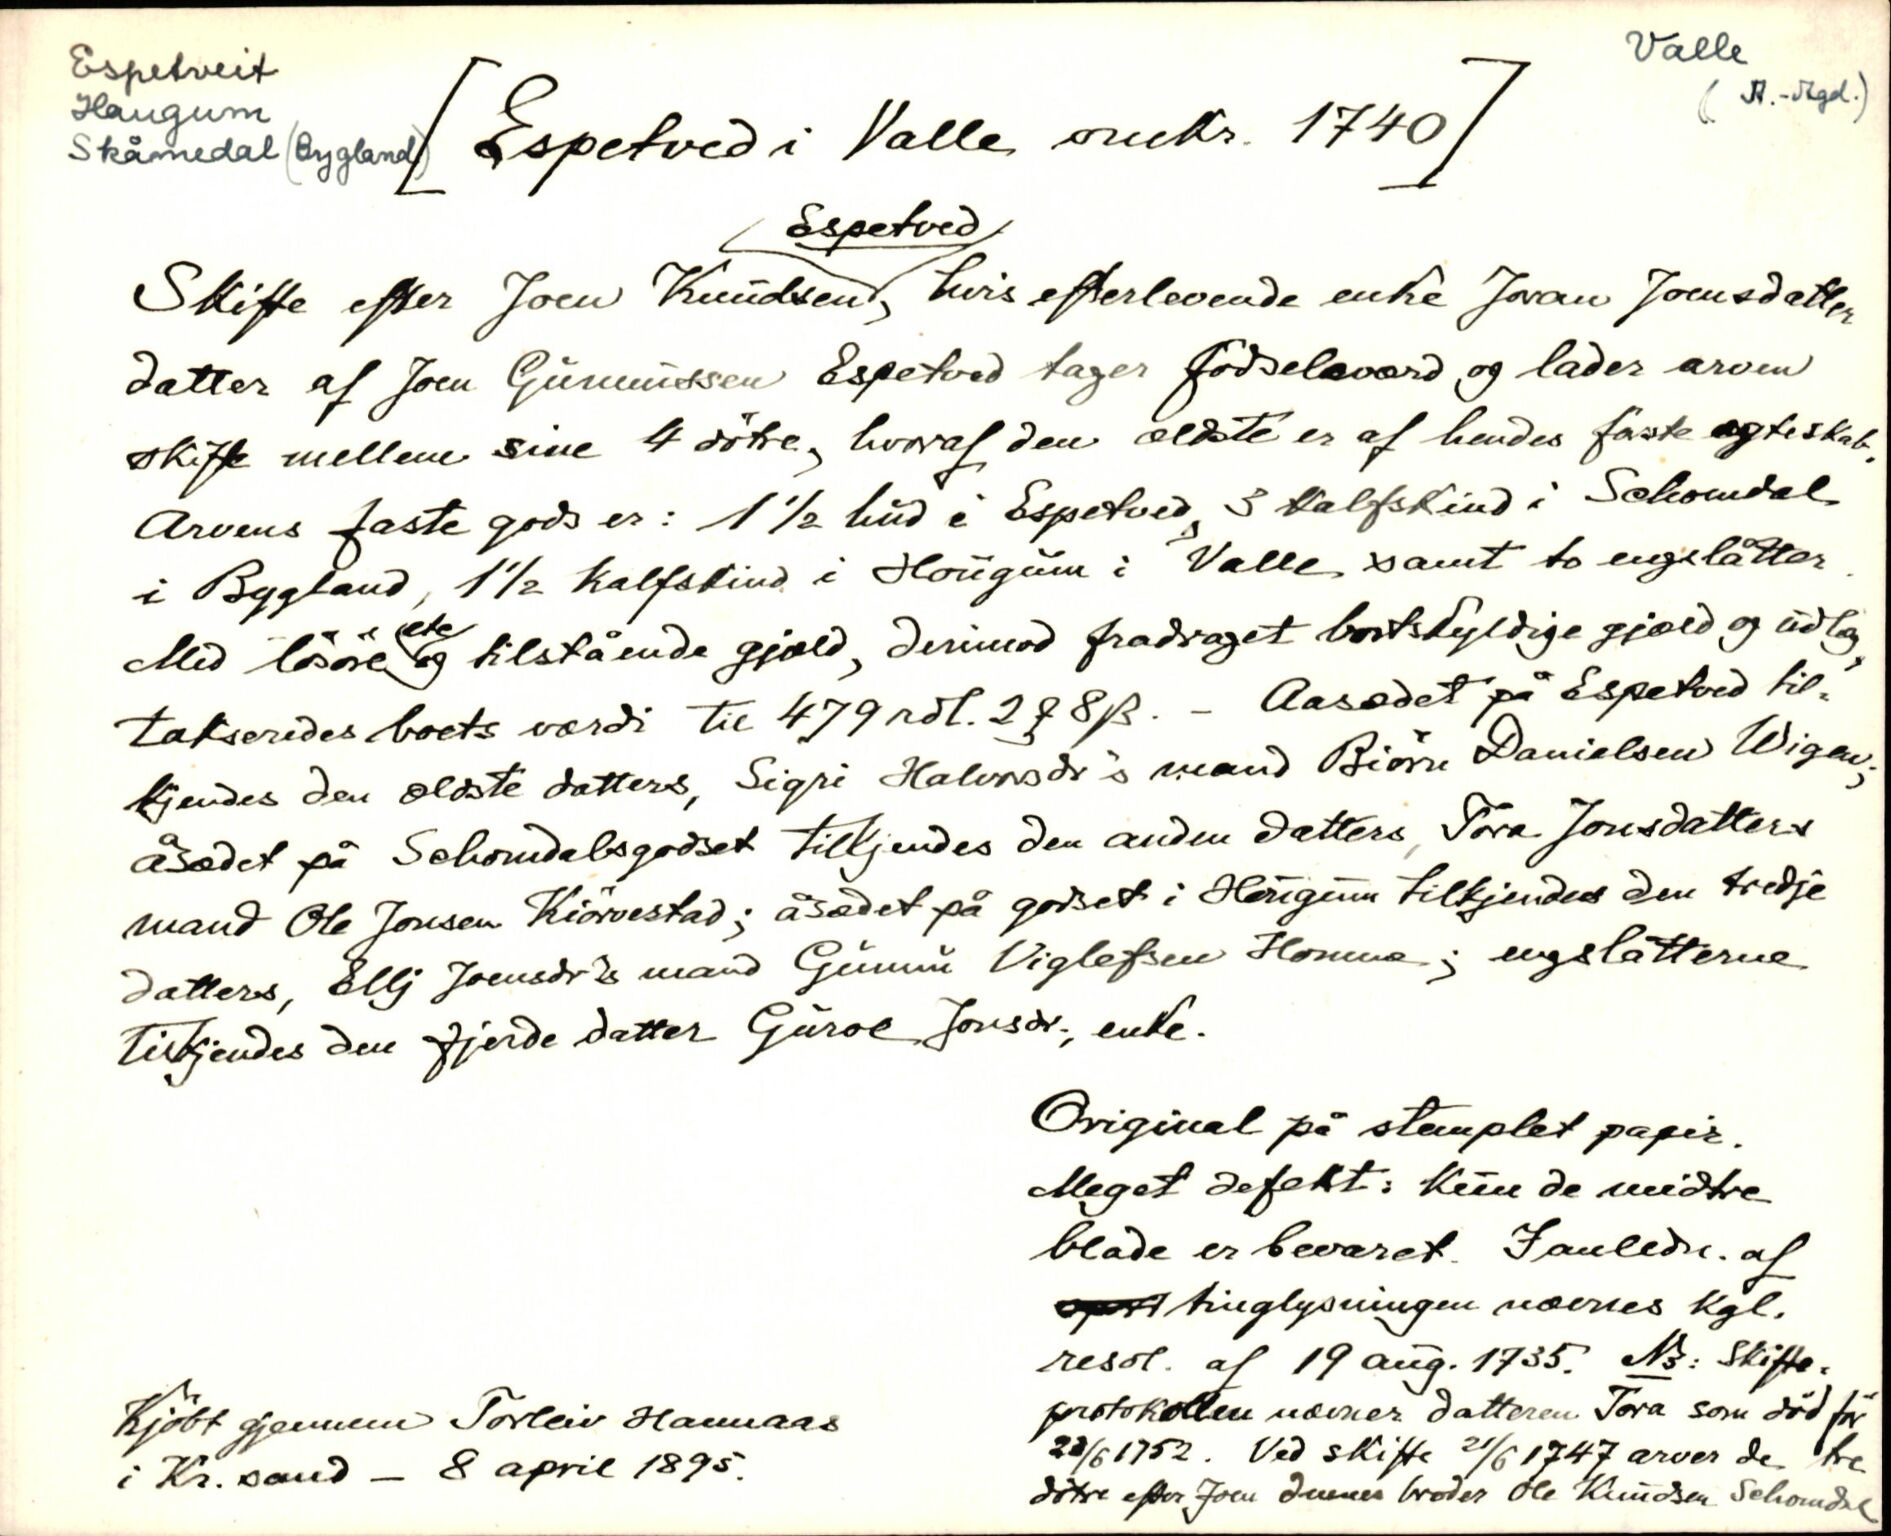 Espetveit
Haugum
Skåmedal (Bygland)
Valle
(A.-Agd.)
[Espetved i Valle omkr. 1740]
Espetved
Skifte efter Joen Knudsen, hvis efterlevende enke Joran Joensdatter
datter af Joen Gunnussen Espetved tager fødselsværd og lader arven
skifte mellem sine 4 døtre, hvoraf den ældste er af hendes første ægteskab.
Arvens faste gods er: 1 1/2 hud i Espetved, 3 kalfskind i Schomdal
i Bygland, 1 1/2 kalfskind i Hougum i Valle samt to engslåtter.
Med løsøre etc og tilstående gjæld, derimod fradraget bortskyldige gjæld og udlæg,
takseredes boets værdi til 479 rdl. 2 ƺ 8 β. – Aasædet på Espetved til-
kjendes den ældste datters, Sigri Halvorsdr's mand Biörn Danielsen Wigen;
åsædet på Schomdalsgodset tilkjendes den anden datters, Tora Jonsdatters
mand Ole Jonsen Kiörvestad; åsædet på godset i Hougum tilkjendes den tredje
datters, Ellj Joensdr's mand Gunnu Viglefsen Homme; engslåtterne
tilkjendes den fjerde datter Guroe Jonsdr., enke.
Original på stemplet papir.
Meget defekt: kun de midtre
blade er bevaret. I anledn. af
tinglysningen nævnes kgl.
resol. af 19 aug. 1735. NB: Skifte-
protokollen nævner datteren Tora som död för
22/6 1752. Ved skifte 21/6 1747 arver de tre
dötre efter Joen dennes broder Ole Knudsen Schomdal
Kjöbt gjennem Torleiv Hannaas
i Kr. sand – 8 april 1895.